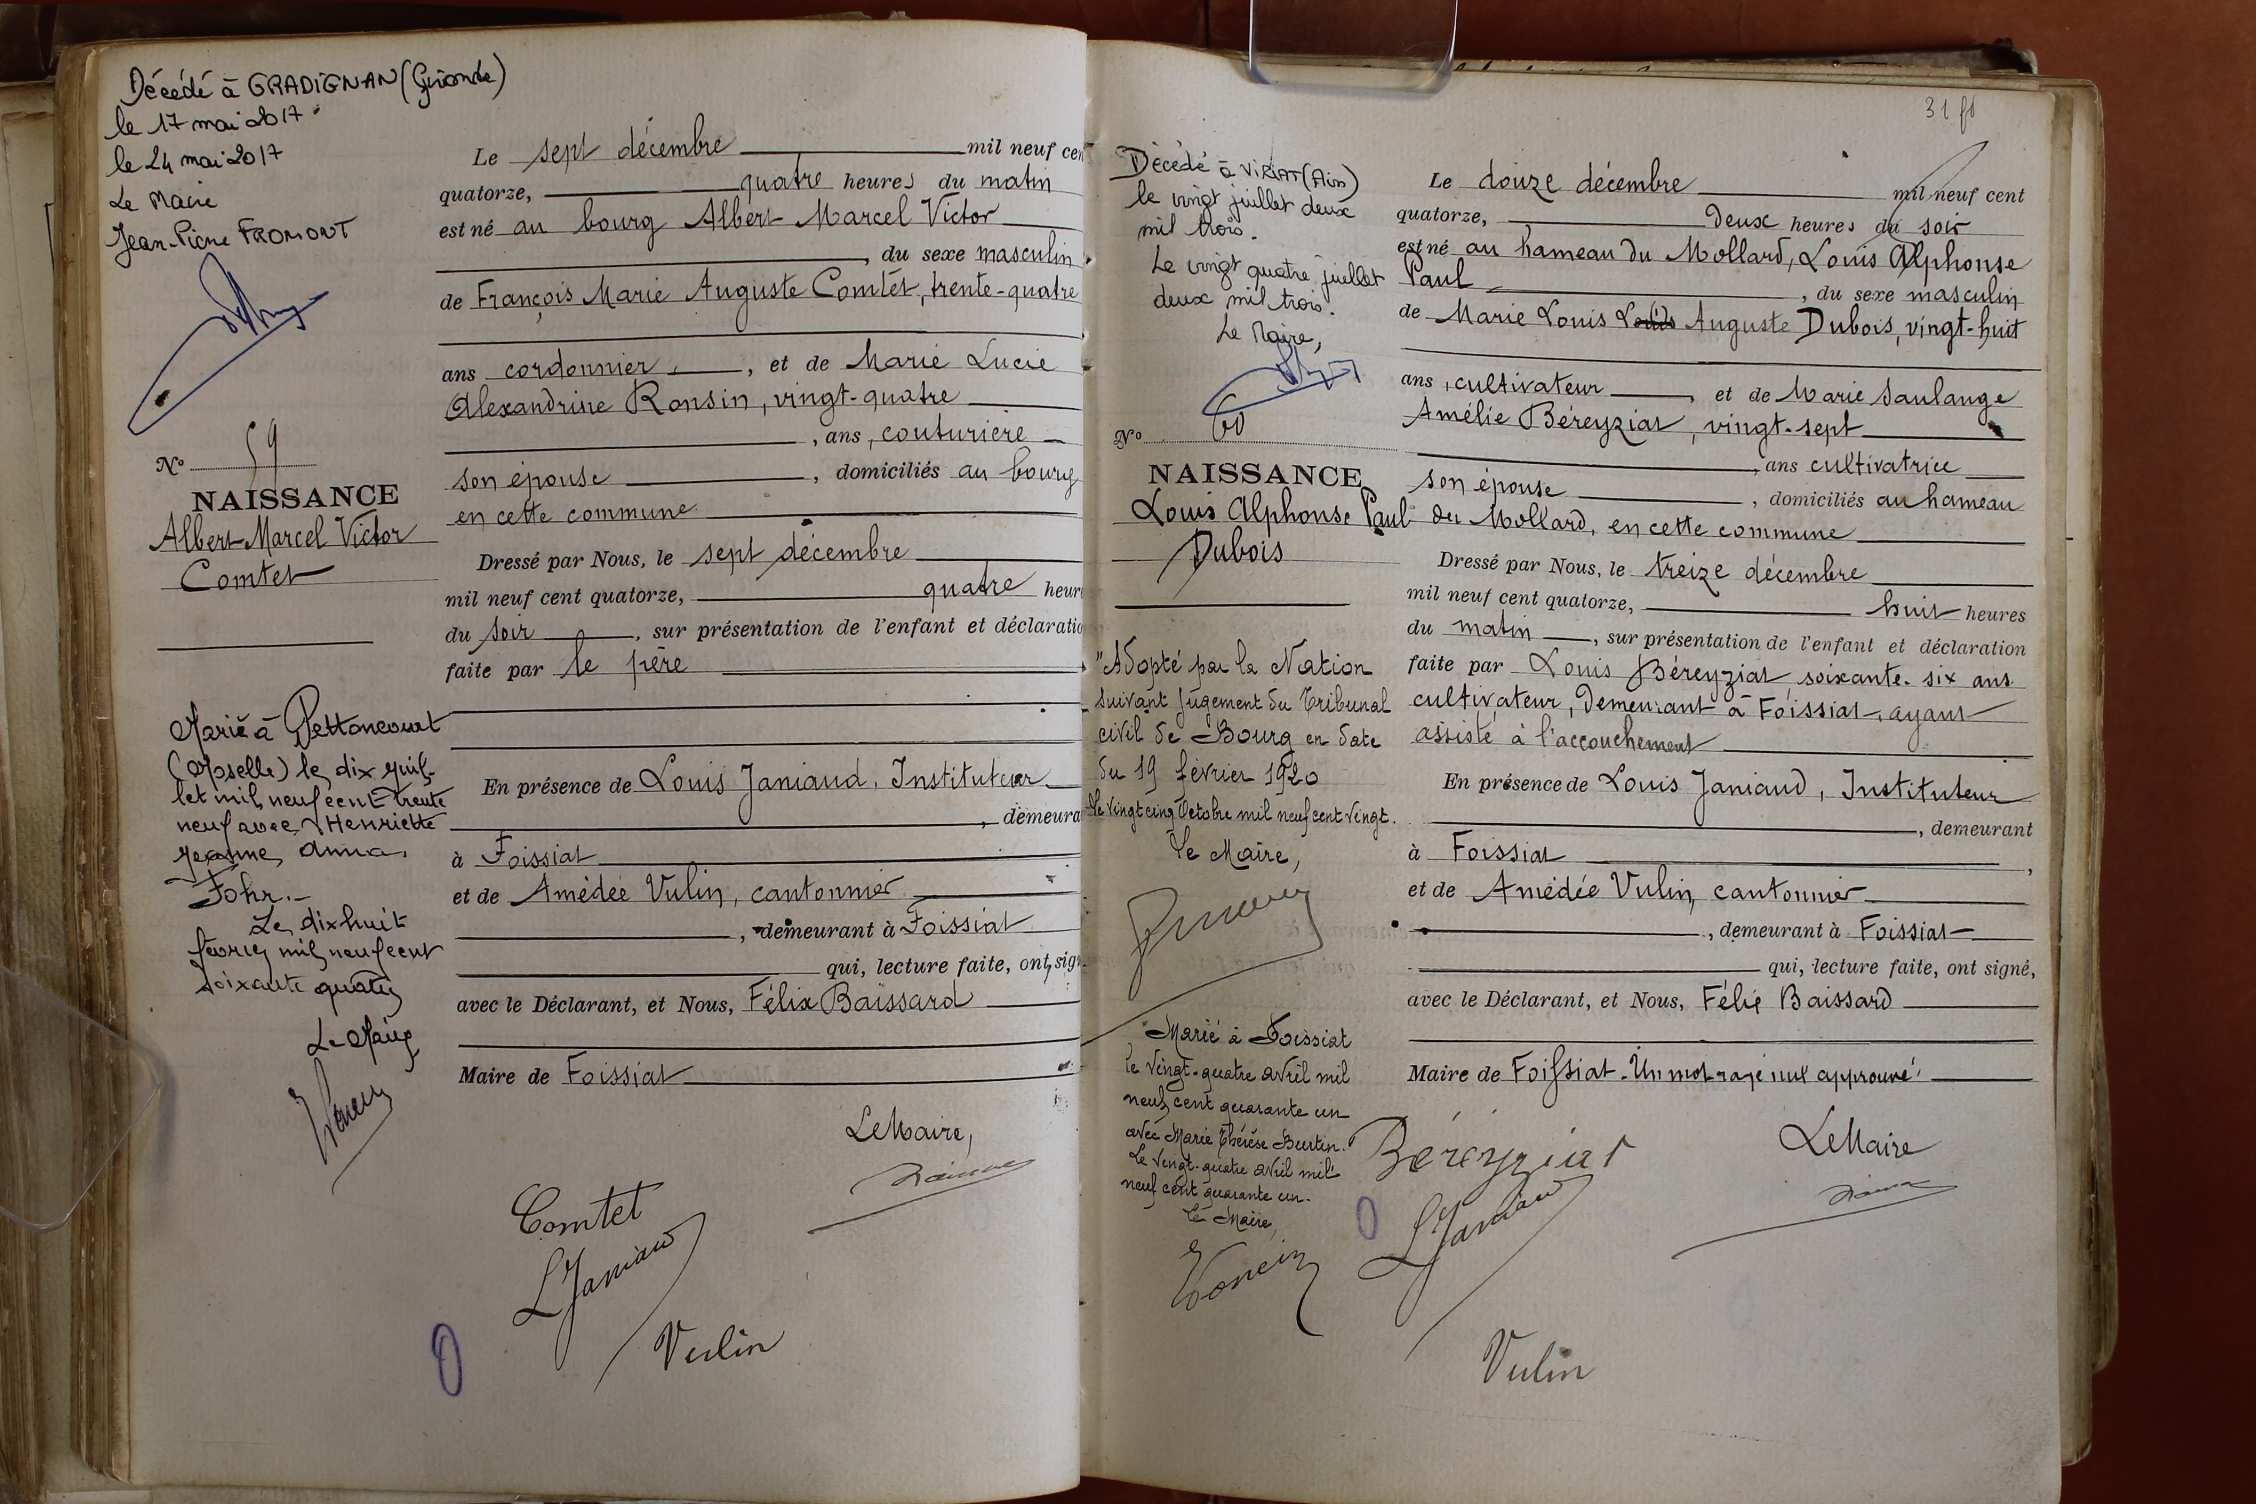 Décédé à GRADIGNAN (Gironde)
le 17 mai 2017
le 24 mai 2017
Le Maire
Jean-Pierre FROMONT
N° 59
NAISSANCE
Albert Marcel Victor
Comtet
Marié à Pettoncourt
(Moselle) le dix juil-
let mil neuf cent trente
neuf avec Henriette
Jeanne, Anna,
Fohr.-
Le dix huit
février mil neuf cent
soixante quatre
Le Maire
Le sept décembre mil neuf cen
quatorze, quatre heures du matin
est né au bourg Albert Marcel Victor
, du sexe masculin
de François Marie Auguste Comtet, trente-quatre
ans cordonnier, et de Marie Lucie
Alexandrine Ronsin, vingt-quatre
, ans, couturière
son épouse , domiciliés au bourg
en cette commune
Dressé par Nous, le sept décembre
mil neuf cent quatorze, quatre heur
du soir , sur présentation de l'enfant et déclaratio
faite par le père
En présence de Louis Janiaud, Instituteur
, demeura
à Foissiat
et de Amédée Vulin, cantonnier
, demeurant à Foissiat
qui, lecture faite, ont sign
avec le Déclarant, et Nous, Félix Baissard
Maire de Foissiat
Le Maire,
Comtet
LJaniaud
Vulin
31 ft
Décédé à VIRIAT (Ain)
le vingt juillet deux
mil trois.
Le vingt quatre juillet
deux mil trois.
Le Maire,
N° 60
NAISSANCE
Louis Alphonse Paul
Dubois
"Adopté par la Nation
suivant jugement du Tribunal
civil de Bourg en date
du 19 février 1920
Le vingt cinq Octobre mil neuf cent vingt.
Le Maire,
Marié à Foissiat
le vingt-quatre avril mil
neuf cent quarante un
avec Marie Thérèse Burtin.
Le vingt-quatre avril mil
neuf cent quarante un.
Le Maire,
Le douze décembre mil neuf cent
quatorze, deux heures du soir
est né au hameau du Mollard, Louis Alphonse
Paul , du sexe masculin
de Marie Louis Louis Auguste Dubois, vingt-huit
ans, cultivateur , et de Marie Saulange
Amélie Béreyziat, vingt-sept
, ans cultivatrice
son épouse , domiciliés au hameau
du Mollard, en cette commune
Dressé par Nous, le treize décembre
mil neuf cent quatorze, huit heures
du matin , sur présentation de l'enfant et déclaration
faite par Louis Béreyziat soixante-six ans
cultivateur, demeurant à Foissiat, ayant
assisté à l'accouchement
En présence de Louis Janiaud, Instituteur
, demeurant
à Foissiat ,
et de Amédée Vulin, cantonnier
, demeurant à Foissiat
qui, lecture faite, ont signé,
avec le Déclarant, et Nous, Félix Baissard
Maire de Foissiat. Un mot rayé nul approuvé.
Le Maire
Béreyziat
LJaniaud
Vulin